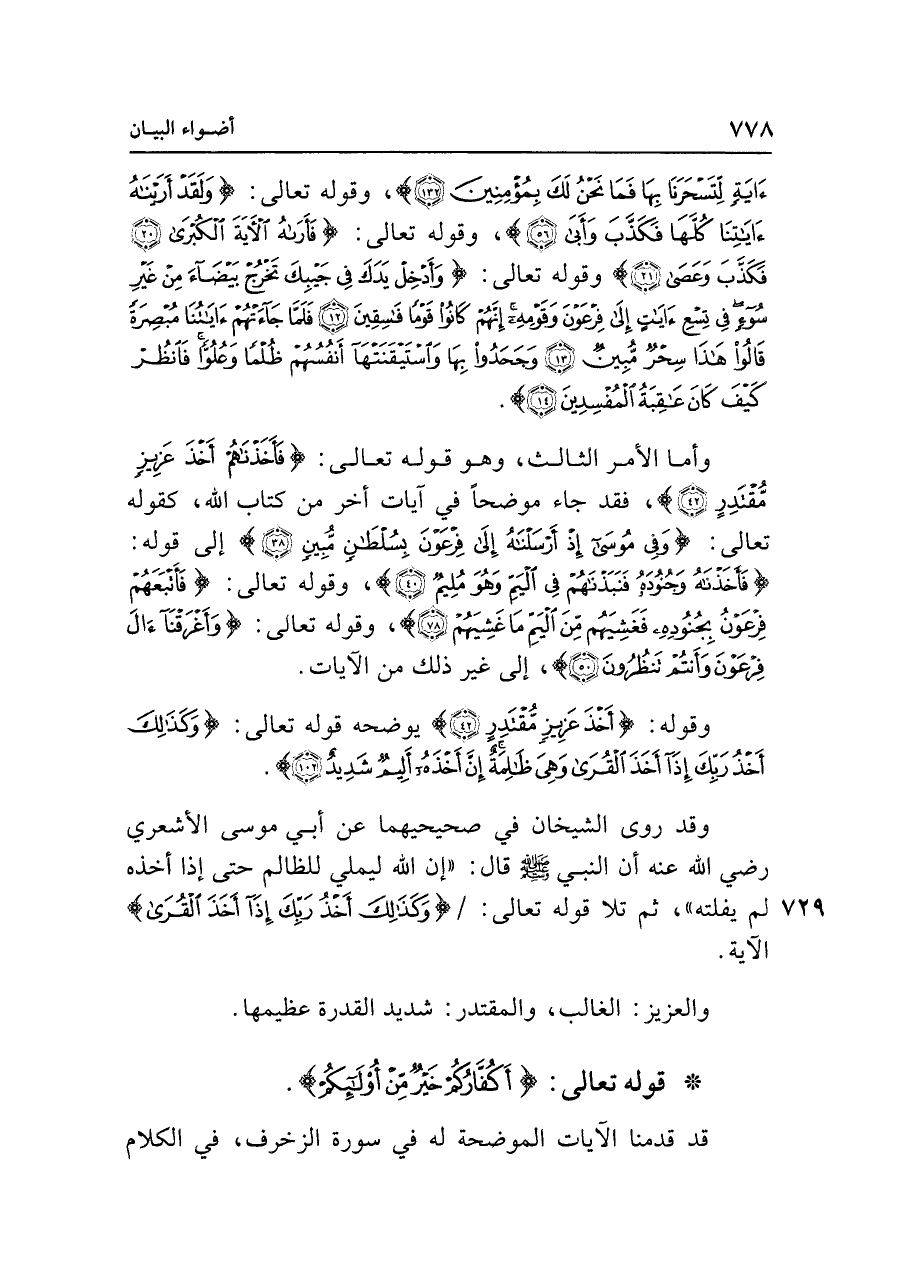 ٧٧٨ أضواء البيان
ءَايَةٍ لِّتَسْحَرَنَا بِهَا فَمَا نَحْنُ لَكَ بِمُؤْمِنِينَ ﴿١٣٢﴾﴾، وقوله تعالى: ﴿وَلَقَدْ أَرَيْنَاهُ
ءَايَاتِنَا كُلَّهَا فَكَذَّبَ وَأَبَىٰ ﴿٥٦﴾﴾، وقوله تعالى: ﴿فَأَرَاهُ الْآيَةَ الْكُبْرَىٰ ﴿٢٠﴾
فَكَذَّبَ وَعَصَىٰ ﴿٢١﴾﴾ وقوله تعالى: ﴿وَأَدْخِلْ يَدَكَ فِي جَيْبِكَ تَخْرُجْ بَيْضَآءَ مِنْ غَيْرِ
سُوٓءٍ فِي تِسْعِ ءَايَاتٍ إِلَىٰ فِرْعَوْنَ وَقَوْمِهِۦٓ إِنَّهُمْ كَانُوا۟ قَوْمًا فَاسِقِينَ ﴿١٢﴾ فَلَمَّا جَآءَتْهُمْ ءَايَاتُنَا مُبْصِرَةً
قَالُوا۟ هَٰذَا سِحْرٌ مُّبِينٌ ﴿١٣﴾ وَجَحَدُوا۟ بِهَا وَاسْتَيْقَنَتْهَآ أَنفُسُهُمْ ظُلْمًا وَعُلُوًّا ۚ فَانظُرْ
كَيْفَ كَانَ عَاقِبَةُ الْمُفْسِدِينَ ﴿١٤﴾﴾.
وأما الأمر الثالث، وهو قوله تعالى: ﴿فَأَخَذْنَاهُمْ أَخْذَ عَزِيزٍ
مُّقْتَدِرٍ ﴿٤٢﴾﴾، فقد جاء موضحاً في آيات أخر من كتاب الله، كقوله
تعالى: ﴿وَفِي مُوسَىٰٓ إِذْ أَرْسَلْنَاهُ إِلَىٰ فِرْعَوْنَ بِسُلْطَانٍ مُّبِينٍ ﴿٣٨﴾﴾ إلى قوله:
﴿فَأَخَذْنَاهُ وَجُنُودَهُۥ فَنَبَذْنَاهُمْ فِي الْيَمِّ وَهُوَ مُلِيمٌ ﴿٤٠﴾﴾، وقوله تعالى: ﴿فَأَتْبَعَهُمْ
فِرْعَوْنُ بِجُنُودِهِۦ فَغَشِيَهُم مِّنَ الْيَمِّ مَا غَشِيَهُمْ ﴿٧٨﴾﴾، وقوله تعالى: ﴿وَأَغْرَقْنَآ ءَالَ
فِرْعَوْنَ وَأَنتُمْ تَنظُرُونَ ﴿٥٠﴾﴾، إلى غير ذلك من الآيات.
وقوله: ﴿أَخْذَ عَزِيزٍ مُّقْتَدِرٍ ﴿٤٢﴾﴾ يوضحه قوله تعالى: ﴿وَكَذَٰلِكَ
أَخْذُ رَبِّكَ إِذَآ أَخَذَ الْقُرَىٰ وَهِيَ ظَالِمَةٌ ۚ إِنَّ أَخْذَهُۥٓ أَلِيمٌ شَدِيدٌ ﴿١٠٢﴾﴾.
وقد روى الشيخان في صحيحيهما عن أبي موسى الأشعري
رضي الله عنه أن النبي ﷺ قال: «إن الله ليملي للظالم حتى إذا أخذه
٧٢٩ لم يفلته»، ثم تلا قوله تعالى: / ﴿وَكَذَٰلِكَ أَخْذُ رَبِّكَ إِذَآ أَخَذَ الْقُرَىٰ﴾
الآية.
والعزيز: الغالب، والمقتدر: شديد القدرة عظيمها.
* قوله تعالى: ﴿أَكُفَّارُكُمْ خَيْرٌ مِّنْ أُو۟لَٰٓئِكُمْ﴾.
قد قدمنا الآيات الموضحة له في سورة الزخرف، في الكلام